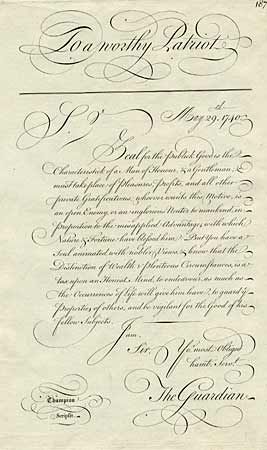 187
To a worthy Patriot.
Sr. May 29th. 1740.
Zeal for the Publick Good is the
Characteristick of a Man of Honour, & a Gentleman, &
must take place of Pleasures, Profits, and all other
private Gratifications; whoever wants this Motive, is
an open Enemy, or an inglorious Neuter to Mankind, in
proportion to the misapplied Advantages with which
Nature & Fortune have blessed him. But you have a
Soul animated with nobler Views, & know that the
Distinction of Wealth & Plenteous Circumstances, is a
tax upon an Honest Mind, to endeavour, as much as
the Occurrences of Life will give him leave, to guard ye
Properties of others, and be vigilant for the Good of his
fellow Subjects.
I am,
Sir, Yr. most Obliged
humb. Servt.
The Guardian.
Champion
Scripsit.